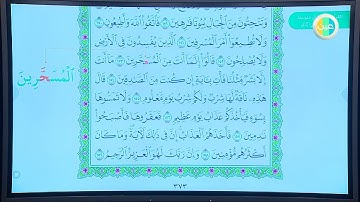 وَتَنْحِتُونَ مِنَ الْجِبَالِ بُيُوتًا فَارِهِينَ ۝ فَاتَّقُوا اللَّهَ وَأَطِيعُونِ ۝
وَلَا تُطِيعُوا أَمْرَ الْمُسْرِفِينَ ۝ الَّذِينَ يُفْسِدُونَ فِي الْأَرْضِ
وَلَا يُصْلِحُونَ ۝ قَالُوا إِنَّمَا أَنتَ مِنَ الْمُسَحَّرِينَ ۝ مَا أَنتَ
إِلَّا بَشَرٌ مِّثْلُنَا فَأْتِ بِآيَةٍ إِن كُنتَ مِنَ الصَّادِقِينَ ۝ قَالَ
هَٰذِهِ نَاقَةٌ لَّهَا شِرْبٌ وَلَكُمْ شِرْبُ يَوْمٍ مَّعْلُومٍ ۝ وَلَا تَمَسُّوهَا
بِسُوءٍ فَيَأْخُذَكُمْ عَذَابُ يَوْمٍ عَظِيمٍ ۝ فَعَقَرُوهَا فَأَصْبَحُوا
نَادِمِينَ ۝ فَأَخَذَهُمُ الْعَذَابُ إِنَّ فِي ذَٰلِكَ لَآيَةً وَمَا كَانَ
أَكْثَرُهُم مُّؤْمِنِينَ ۝ وَإِنَّ رَبَّكَ لَهُوَ الْعَزِيزُ الرَّحِيمُ ۝
الْمُسَحَّرِينَ
٣٧٣